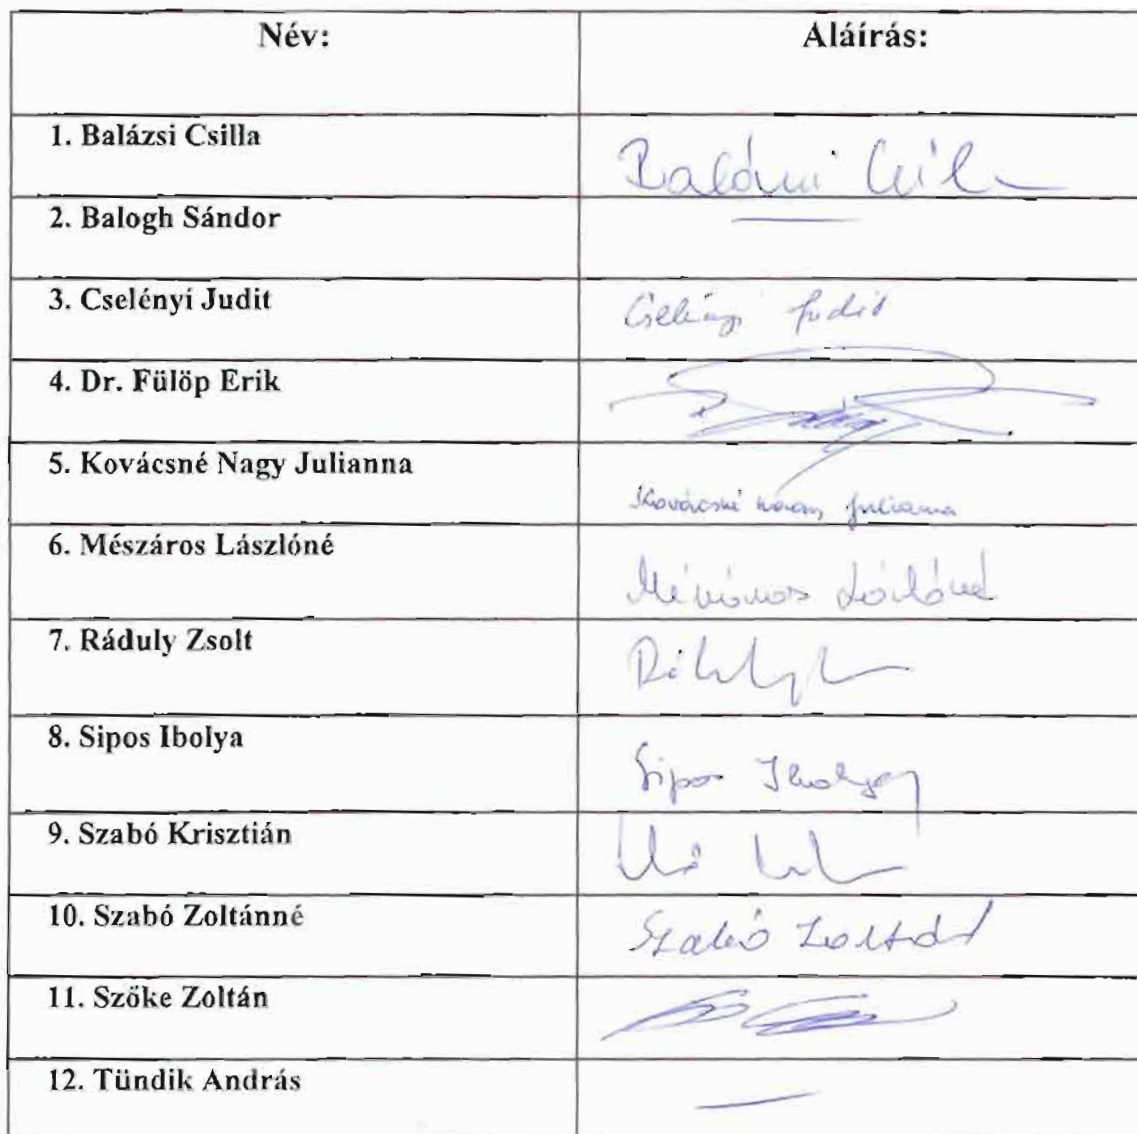 Név: Aláírás:
1. Balázsi Csilla
2. Balogh Sándor
3. Cselényi Judit Cselényi Judit
4. Dr. Fülöp Erik
5. Kovácsné Nagy Julianna Kovácsné Nagy Julianna
6. Mészáros Lászlóné Mészáros Lászlóné
7. Ráduly Zsolt
8. Sipos Ibolya Sipos Ibolya
9. Szabó Krisztián
10. Szabó Zoltánné Szabó
11. Szőke Zoltán
12. Tündik András